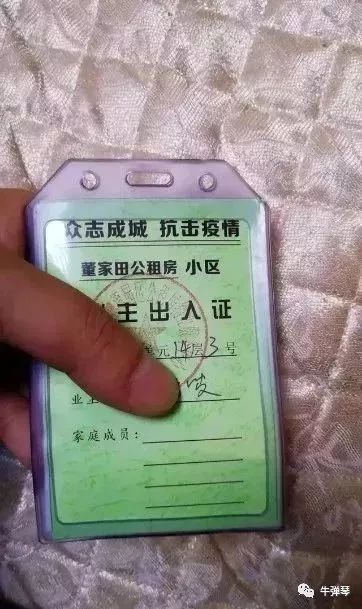 众志成城 抗击疫情
董家田公租房 小区
主出入证
单元14层3号
业主
家庭成员：
牛弹琴